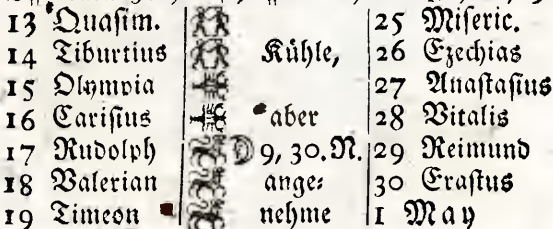 13 Quaſim. 25 Miſeric.
14 Tiburtius Kühle, 26 Ezechias
15 Olympia 27 Anaſtaſius
16 Cariſius aber 28 Vitalis
17 Rudolph 9, 30. N. 29 Reimund
18 Valerian ange⸗ 30 Eraſtus
19 Timeon nehme 1 May